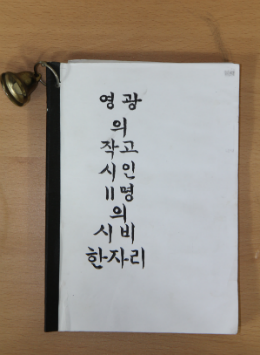 영광
의
작고
시인
11명
의
시비
한자리